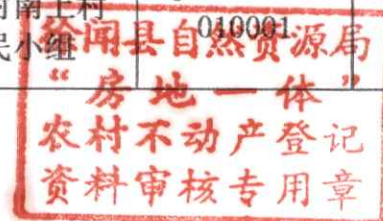 南上村
民小组
010001
徐闻县自然资源局
“房地一体”
农村不动产登记
资料审核专用章